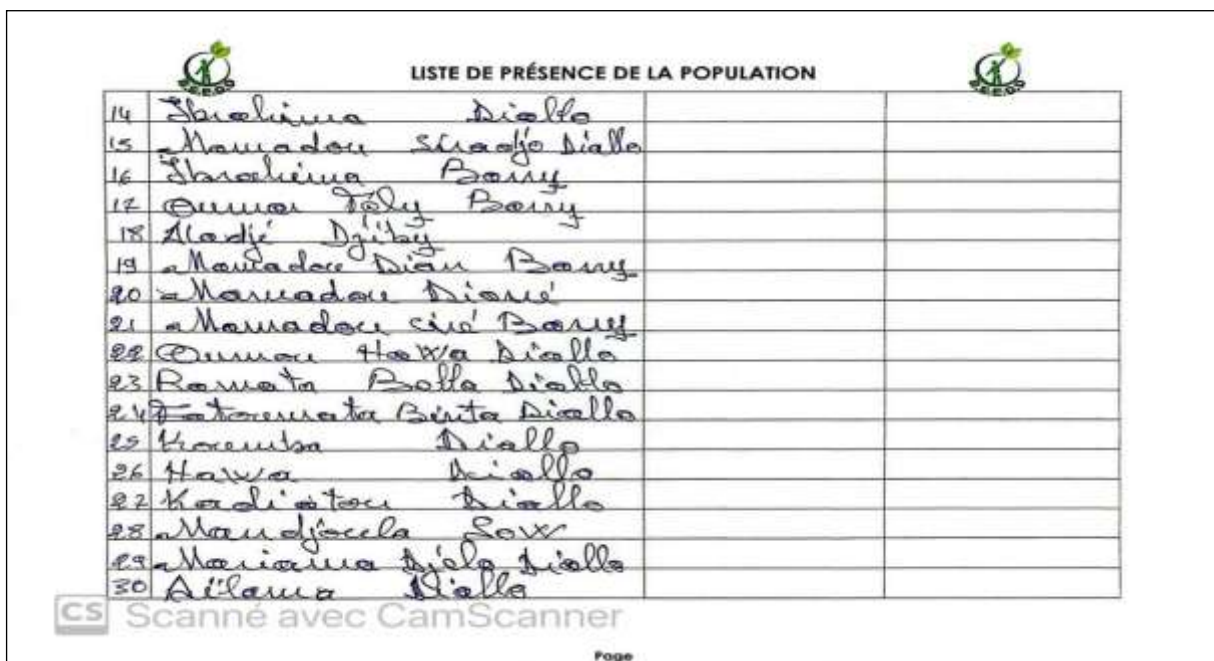 LISTE DE PRÉSENCE DE LA POPULATION
14 Ibrahima Diallo
15 Mamadou Siradjo Diallo
16 Ibrahima Barry
17 Oumar Tély Barry
18 Aladjé Djiby
19 Mamadou Dian Barry
20 Mamadou Diané
21 Mamadou ciré Barry
22 Oumou Hawa Diallo
23 Ramata Bella Diallo
24 Fatoumata Binta Diallo
25 Koumba Diallo
26 Hawa Diallo
27 Kadiatou Diallo
28 Mandjoula Sow
29 Mariama Djelo Diallo
30 Diallo
CS Scanné avec CamScanner
Page